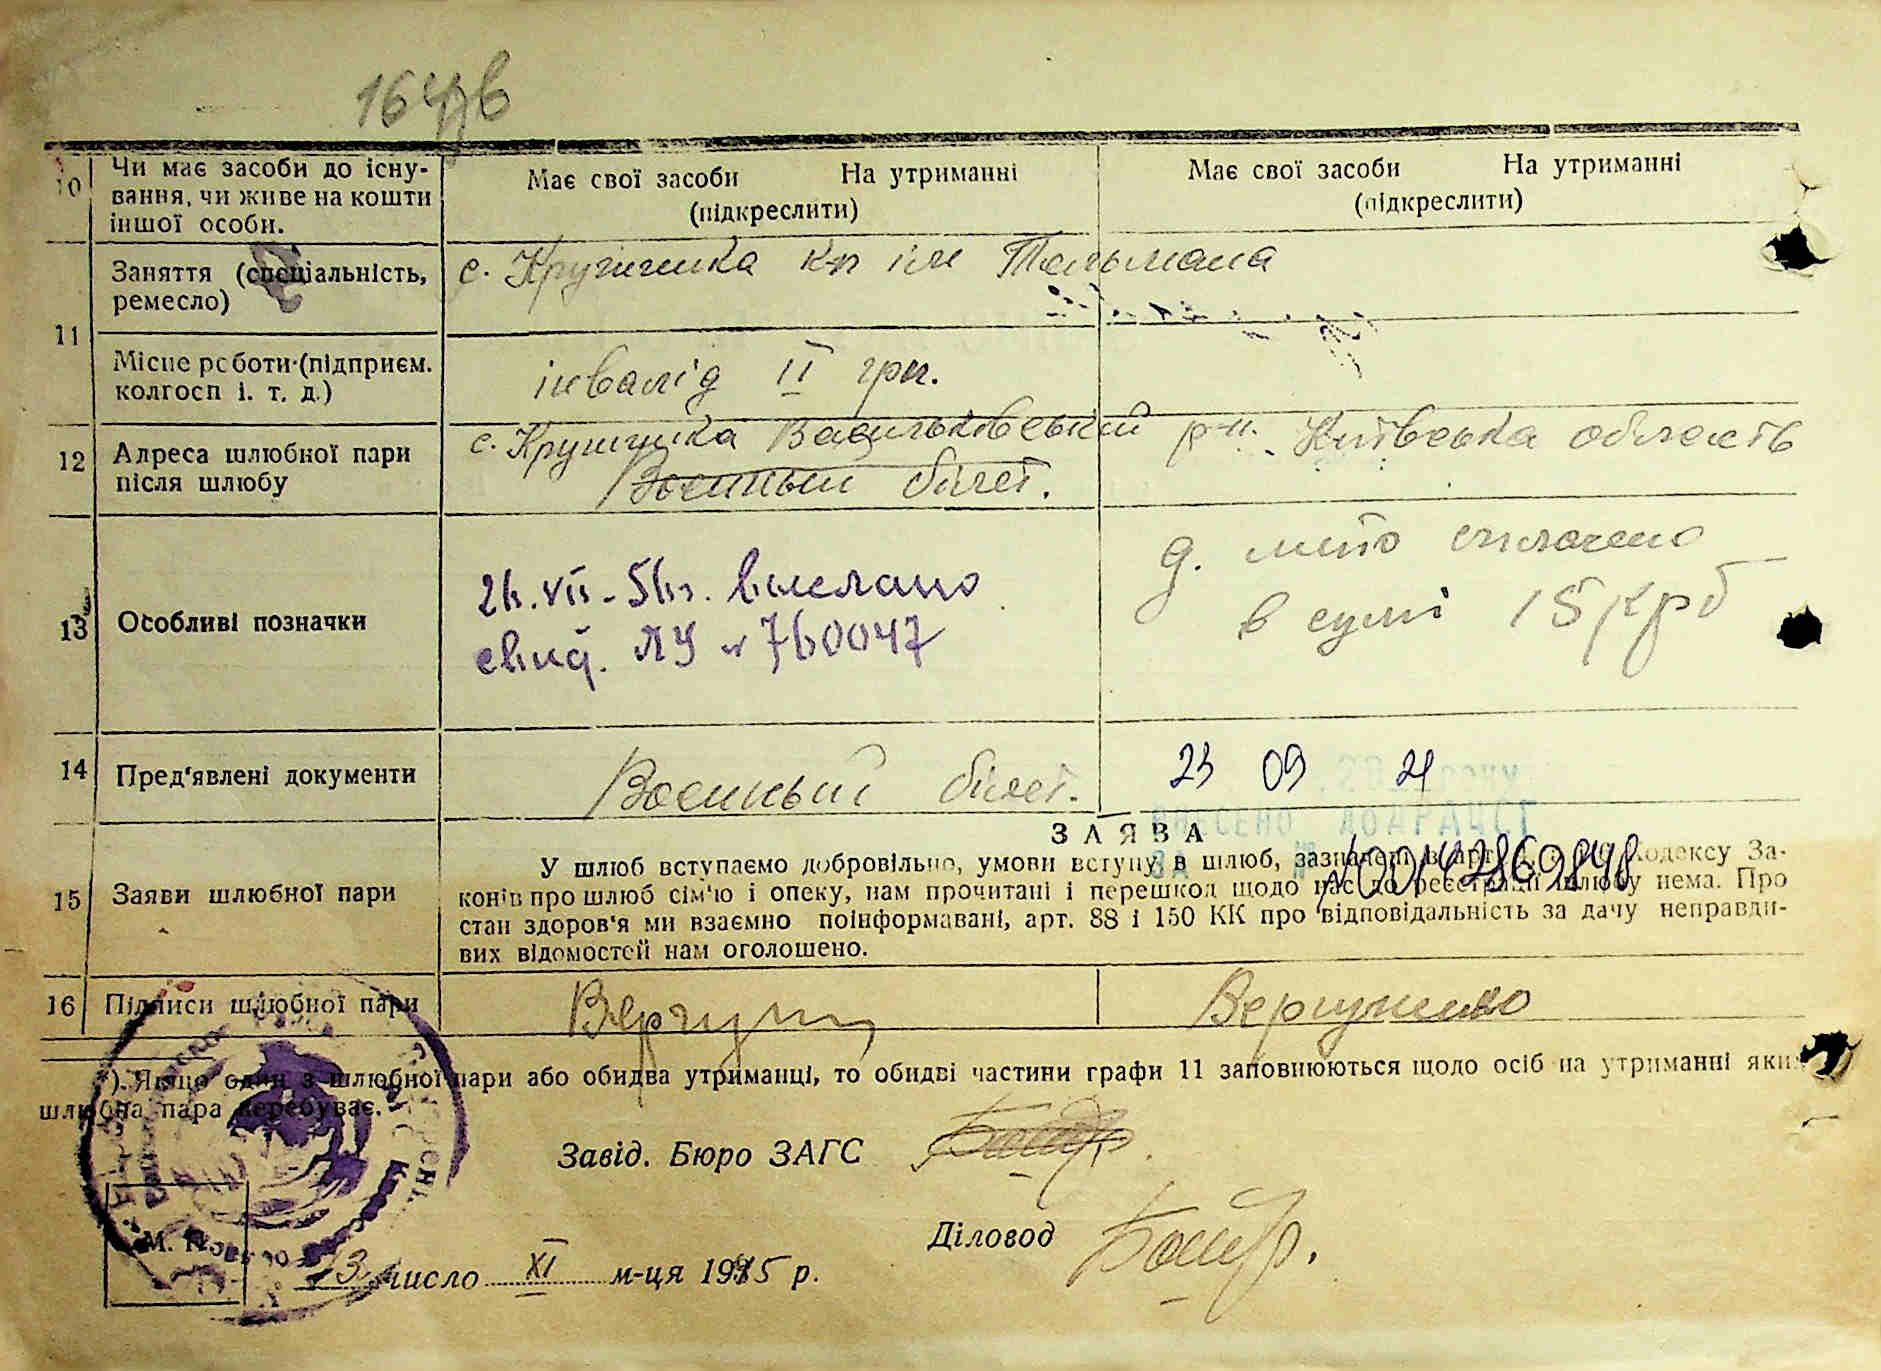 10 Чи має засоби до існу-
вання, чи живе на кошти
іншої особи.
Має свої засоби На утриманні
(підкреслити)
Має свої засоби На утриманні
(підкреслити)
11
Заняття (спеціальність,
ремесло)
с. Крушинка кп ім Тельмана
Місце роботи (підприєм.
колгосп і. т. д.)
інвалід ІІ гру.
12 Адреса шлюбної пари
після шлюбу
с. Крушинка Васильківський р-н. Київська область
Воєнный білет.
13 Особливі позначки
26.VII-56г. вислано
свид. ЛУ № 760047
д. мито сплачено
в сумі 15 крб
14 Пред'явлені документи
Воєнный білет.
23 09 21
20 року
ВНЕСЕНО ДО ДРАЦСГ
ЗА №
00142869848
15 Заяви шлюбної пари
ЗАЯВА
У шлюб вступаємо добровільно, умови вступу в шлюб, зазначені в арт. Кодексу За-
конів про шлюб сім'ю і опеку, нам прочитані і перешкод щодо нас до реєстрації шлюбу нема. Про
стан здоров'я ми взаємно поінформавані, арт. 88 і 150 КК про відповідальність за дачу неправди-
вих відомостей нам оголошено.
16 Підписи шлюбної пари
*) Якщо один з шлюбної пари або обидва утриманці, то обидві частини графи 11 заповнюються щодо осіб на утриманні яких
шлюбна пара перебуває.
Завід. Бюро ЗАГС
Діловод
М. П.
13 число XI м-ця 1945 р.